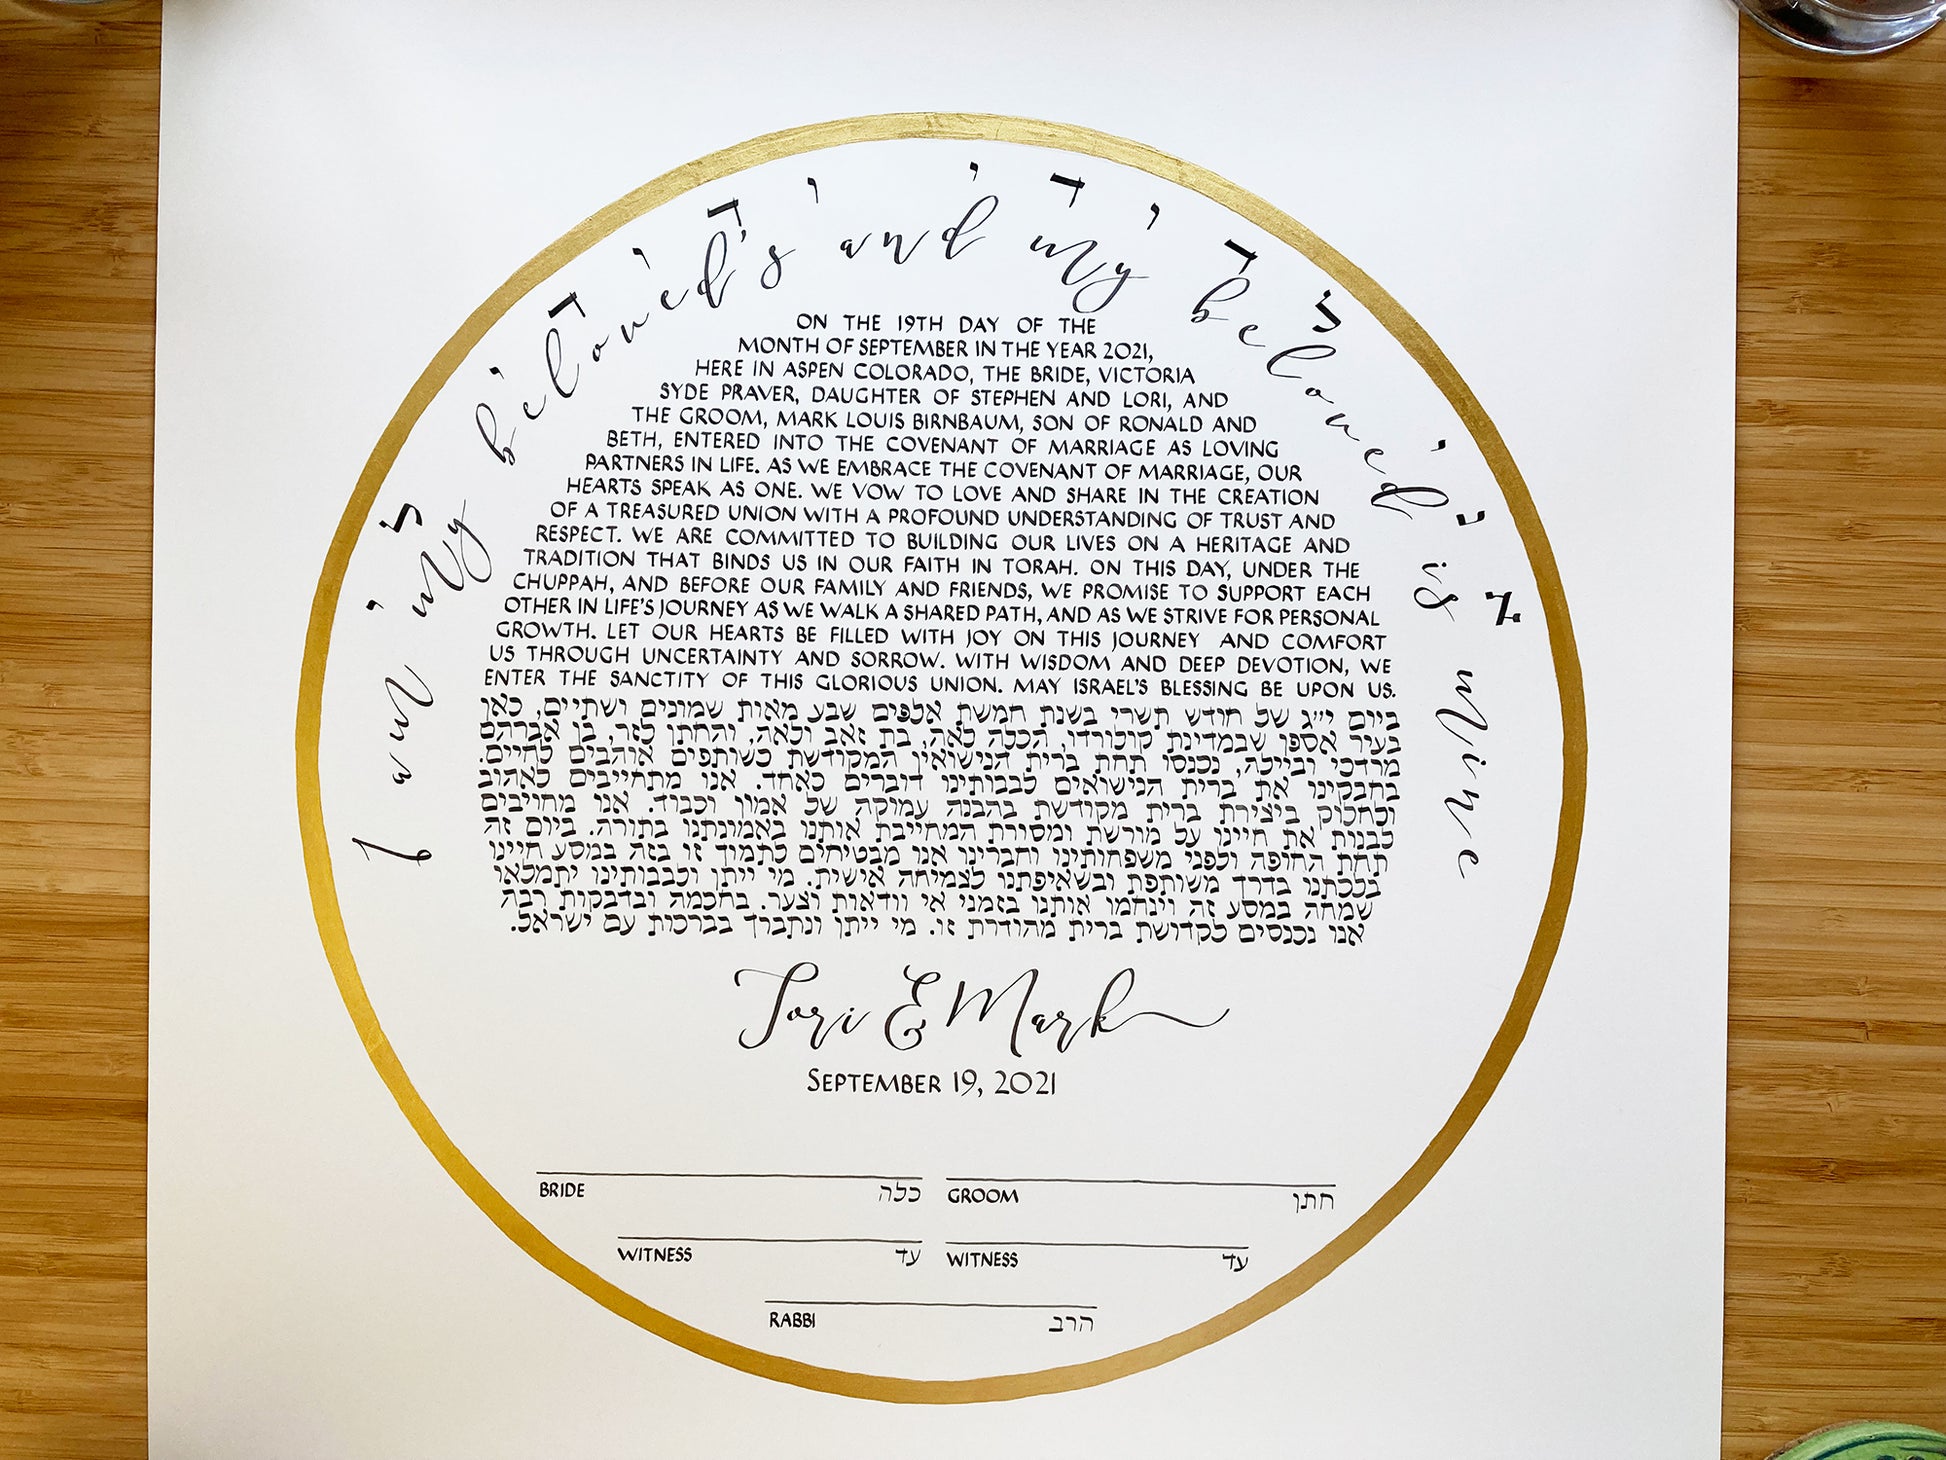 אני לדודי ודודי לי
I am my beloved's and my beloved is mine
ON THE 19TH DAY OF THE
MONTH OF SEPTEMBER IN THE YEAR 2021,
HERE IN ASPEN COLORADO, THE BRIDE, VICTORIA
SYDE PRAVER, DAUGHTER OF STEPHEN AND LORI, AND
THE GROOM, MARK LOUIS BIRNBAUM, SON OF RONALD AND
BETH, ENTERED INTO THE COVENANT OF MARRIAGE AS LOVING
PARTNERS IN LIFE. AS WE EMBRACE THE COVENANT OF MARRIAGE, OUR
HEARTS SPEAK AS ONE. WE VOW TO LOVE AND SHARE IN THE CREATION
OF A TREASURED UNION WITH A PROFOUND UNDERSTANDING OF TRUST AND
RESPECT. WE ARE COMMITTED TO BUILDING OUR LIVES ON A HERITAGE AND
TRADITION THAT BINDS US IN OUR FAITH IN TORAH. ON THIS DAY, UNDER THE
CHUPPAH, AND BEFORE OUR FAMILY AND FRIENDS, WE PROMISE TO SUPPORT EACH
OTHER IN LIFE'S JOURNEY AS WE WALK A SHARED PATH, AND AS WE STRIVE FOR PERSONAL
GROWTH. LET OUR HEARTS BE FILLED WITH JOY ON THIS JOURNEY AND COMFORT
US THROUGH UNCERTAINTY AND SORROW. WITH WISDOM AND DEEP DEVOTION, WE
ENTER THE SANCTITY OF THIS GLORIOUS UNION. MAY ISRAEL'S BLESSING BE UPON US.
ביום י״ג של חודש תשרי בשנת חמשת אלפים שבע מאות שמונים ושתיים, כאן
בעיר אספן שבמדינת קולורדו, הכלה לאה, בת זאב ולאה, והחתן לזר, בן אברהם
מרדכי וביילה, נכנסו תחת ברית הנישואין המקודשת כשותפים אוהבים לחיים.
בחבקינו את ברית הנישואים לבבותינו דוברים כאחד. אנו מתחייבים לאהוב
ולחלוק ביצירת ברית מקודשת בהבנה עמוקה של אמון וכבוד. אנו מחויבים
לבנות את חיינו על מורשת ומסורת המחייבת אותנו באמונתנו בתורה. ביום זה
תחת החופה ולפני משפחותינו וחברינו אנו מבטיחים לתמוך זו בזה במסע חיינו
בלכתנו בדרך משותפת ובשאיפתנו לצמיחה אישית. מי ייתן ולבבותינו יתמלאו
שמחה במסע זה וינחמו אותנו בזמני אי וודאות וצער. בחכמה ובדבקות רבה
אנו נכנסים לקדושת ברית מהודרת זו. מי ייתן ונתברך בברכות עם ישראל.
Tori & Mark
SEPTEMBER 19, 2021
BRIDE כלה GROOM חתן
WITNESS עד WITNESS עד
RABBI הרב